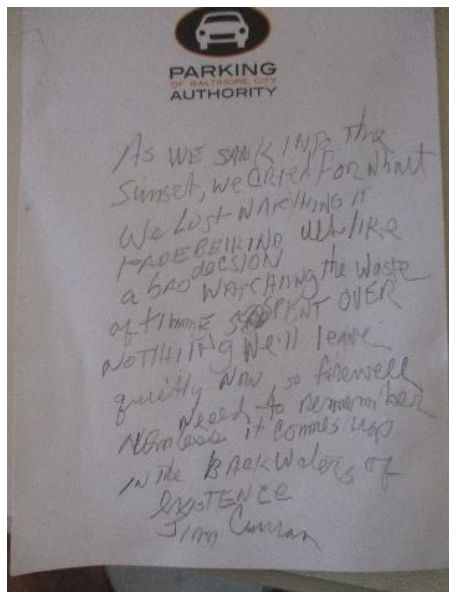 PARKING
OF BALTIMORE CITY
AUTHORITY
AS WE SANK INTO the
Sunset, we CRIED FOR What
We Lost WATCHING IT
FADE BEHIND US like
a bad decsion
WATCHING the Waste
of time SPENT OVER
NOTHING We'll leave
quietly Now so firewell
Need to remember
Nemless it commes up
IN The BACKWaters of
EXISTENCE
Jim Curran